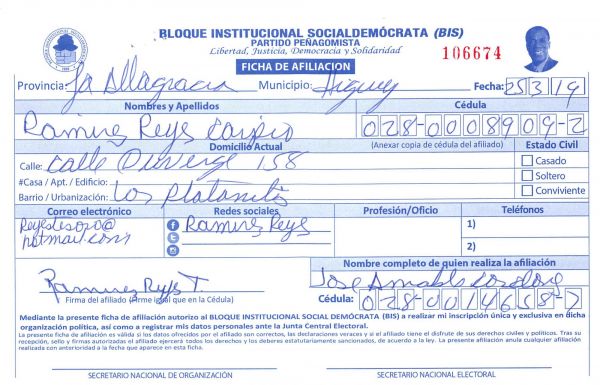 BLOQUE INSTITUCIONAL SOCIALDEMÓCRATA (BIS)
PARTIDO PEÑAGOMISTA
Libertad, Justicia, Democracia y Solidaridad
106674
FICHA DE AFILIACION
Provincia: La Altagracia Municipio: Higuey Fecha: 25 3 19
Nombres y Apellidos Cédula
Ramirez Reyes 028-0008909-2
Domicilio Actual (Anexar copia de cédula del afiliado) Estado Civil
Calle: Calle Duverge 158 Casado
#Casa / Apt. / Edificio: Soltero
Barrio / Urbanización: Los Platanitos Conviviente
Correo electrónico Redes sociales Profesión/Oficio Teléfonos
Reyestesoro@ Ramirez Reyes 1)
hotmail.com 2)
Nombre completo de quien realiza la afiliación
Ramirez Reyes T. Jose Amable
Firma del afiliado (Firme igual que en la Cédula) Cédula: 028-0014658-7
Mediante la presente ficha de afiliación autorizo al BLOQUE INSTITUCIONAL SOCIAL DEMÓCRATA (BIS) a realizar mi inscripción única y exclusiva en dicha
organización política, así como a registrar mis datos personales ante la Junta Central Electoral.
La presente ficha de afiliación es válida si los datos ofrecidos por el afiliado son correctos, las declaraciones veraces y si el afiliado tiene el disfrute de sus derechos civiles y políticos. Tras su
recepción, sello y firmas autorizadas el afiliado ejercerá todos los derechos y los deberes estatutariamente sancionados, de acuerdo a la ley. La presente afiliación anula cualquier afiliación
realizada con anterioridad a la fecha que aparece en esta ficha.
SECRETARIO NACIONAL DE ORGANIZACIÓN SECRETARIO NACIONAL ELECTORAL